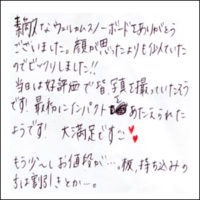 素敵なウェルカムスノーボードをありがとう
ございました。顔が思ったよりも似ていた
のでビックリしました!!
当日は好評価で皆、写真を撮っていたそう
です!最初にインパクト あたえられた
ようです! 大満足です
もう少しお値段が…。板、持ち込みの
方は割引きとか…。